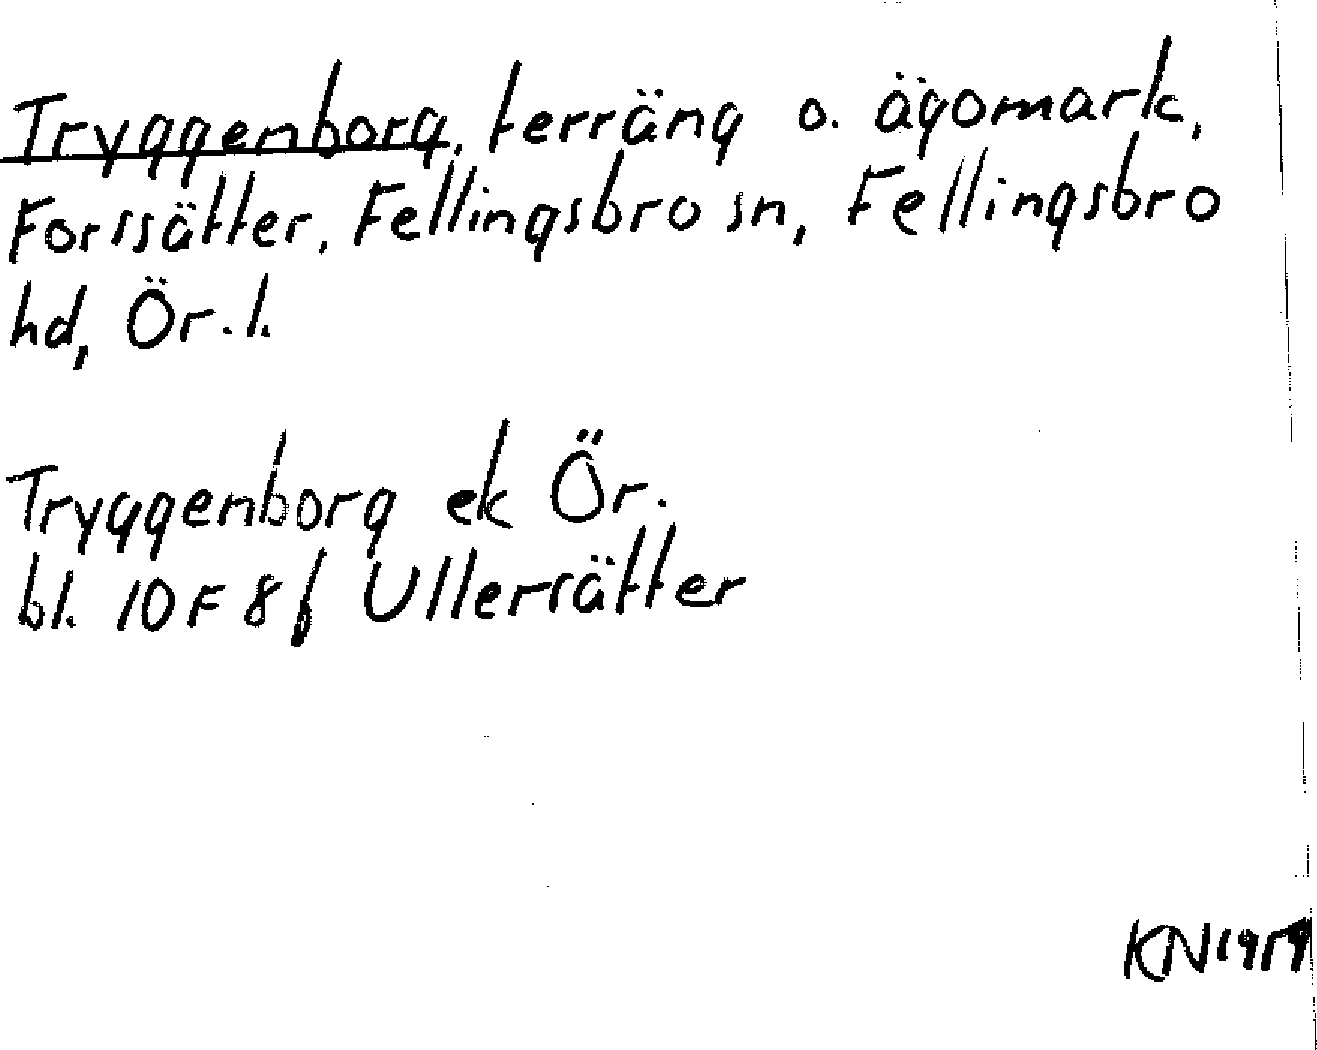 Tryggenborg, terräng o. ägomark,
Forssätter, Fellingsbro sn, Fellingsbro
hd, Ör. l.
Tryggenborg ek Ör.
bl. 10F 8f Ullersätter
KN